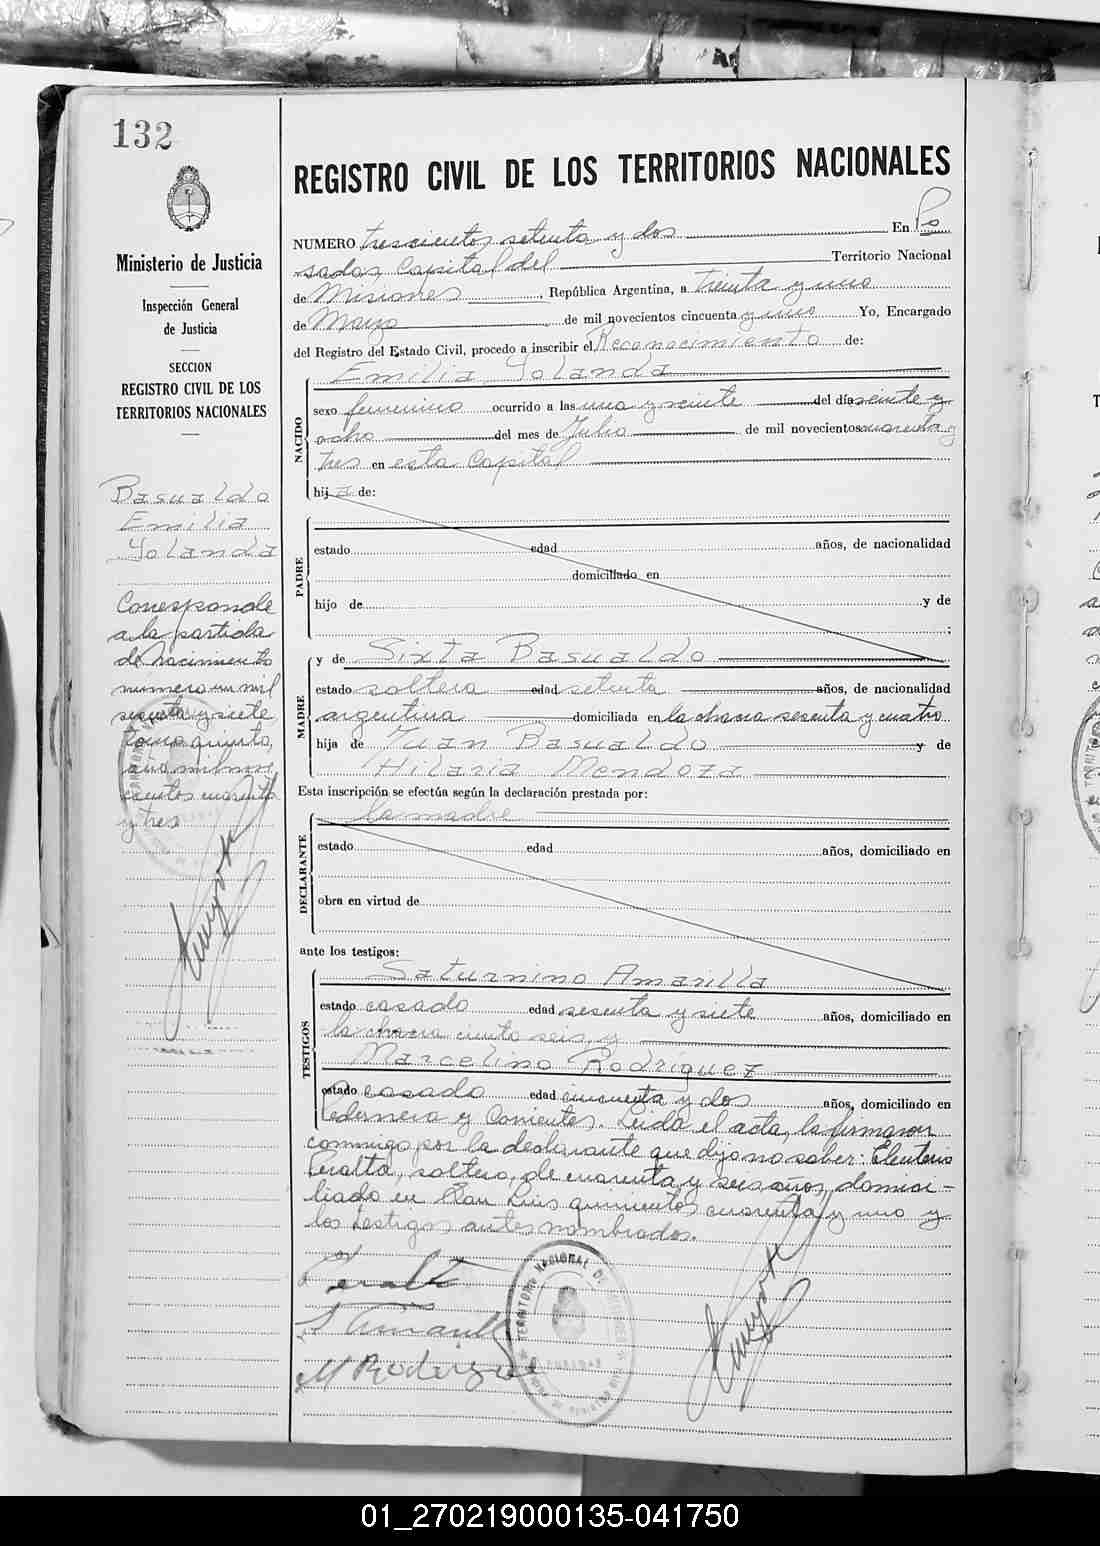 132
REGISTRO CIVIL DE LOS TERRITORIOS NACIONALES
Ministerio de Justicia
Inspección General
de Justicia
SECCION
REGISTRO CIVIL DE LOS
TERRITORIOS NACIONALES
Basualdo
Emilia
Yolanda
Corresponde
a la partida
de Nacimiento
número un mil
sesenta y siete
tomo quinto,
año mil nove
cientos cuarenta
y tres
NUMERO trescientos setenta y dos En Po
sadas Capital del Territorio Nacional
de Misiones, República Argentina, a treinta y uno
de Marzo de mil novecientos cincuenta y uno Yo, Encargado
del Registro del Estado Civil, procedo a inscribir el Reconocimiento de:
NACIDO
Emilia Yolanda
sexo femenino ocurrido a las una y veinte del día veinte y
ocho del mes de Julio de mil novecientos cuarenta y
tres en esta Capital
hija de:
PADRE
estado edad años, de nacionalidad
domiciliado en
hijo de y de
;
MADRE
y de Sixta Basualdo
estado soltera edad setenta años, de nacionalidad
argentina domiciliada en la chacra sesenta y cuatro
hija de Juan Basualdo y de
Hilaria Mendoza
Esta inscripción se efectúa según la declaración prestada por:
DECLARANTE
la madre
estado edad años, domiciliado en
obra en virtud de
ante los testigos:
TESTIGOS
Saturnino Amarilla
estado casado edad sesenta y siete años, domiciliado en
la chacra ciento seis y
Marcelino Rodríguez
estado casado edad cincuenta y dos años, domiciliado en
Pedernera y Corrientes. Leída el acta, la firmaron
conmigo por la declarante que dijo no saber: Eleuterio
Peralta, soltero, de cuarenta y seis años, domici-
liado en San Luis quinientos cuarenta y uno y
los testigos antes nombrados.
Peralta
S Amarilla
M Rodriguez
TERRITORIO NACIONAL DE MISIONES
POSADAS
01_270219000135-041750